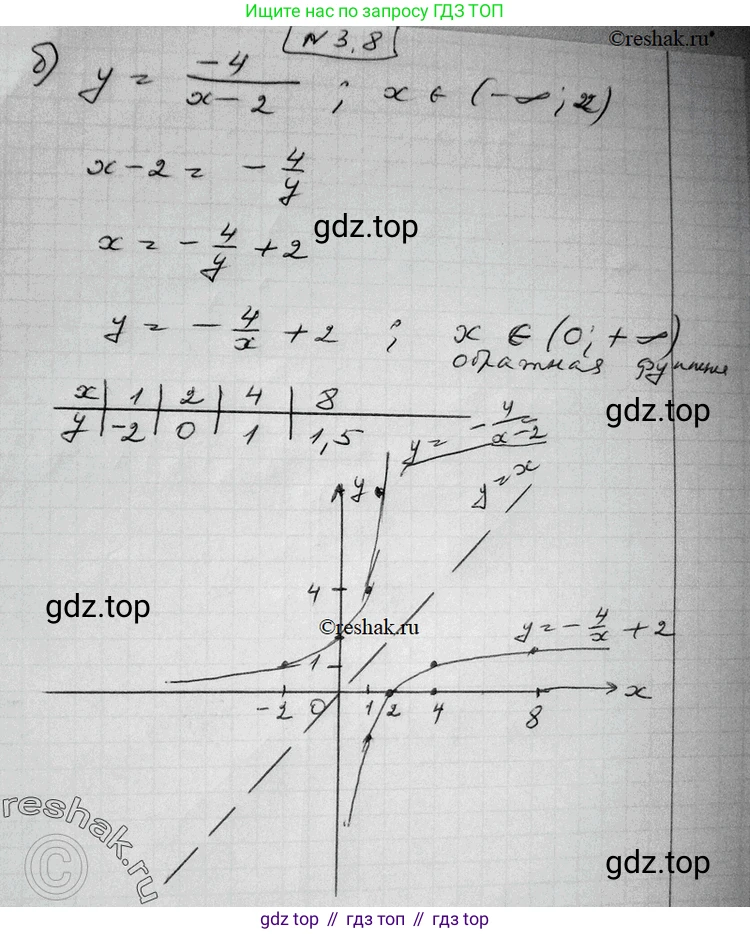 Ищите нас по запросу ГДЗ ТОП
©reshak.ru
N 3.8
б) y = -4/(x-2) ; x ∈ (-∞; 2)
x - 2 = - 4/y
gdz.top
x = - 4/y + 2
y = - 4/x + 2 ; x ∈ (0; +∞)
обратная функция
x | 1 | 2 | 4 | 8
y | -2 | 0 | 1 | 1,5
gdz.top
y = - 4/(x-2)
y = x
y
4
gdz.top
©reshak.ru
y = - 4/x + 2
1
-2 0 1 2 4 8 x
reshak.ru
©
gdz.top
gdz top // гдз топ // gdz top